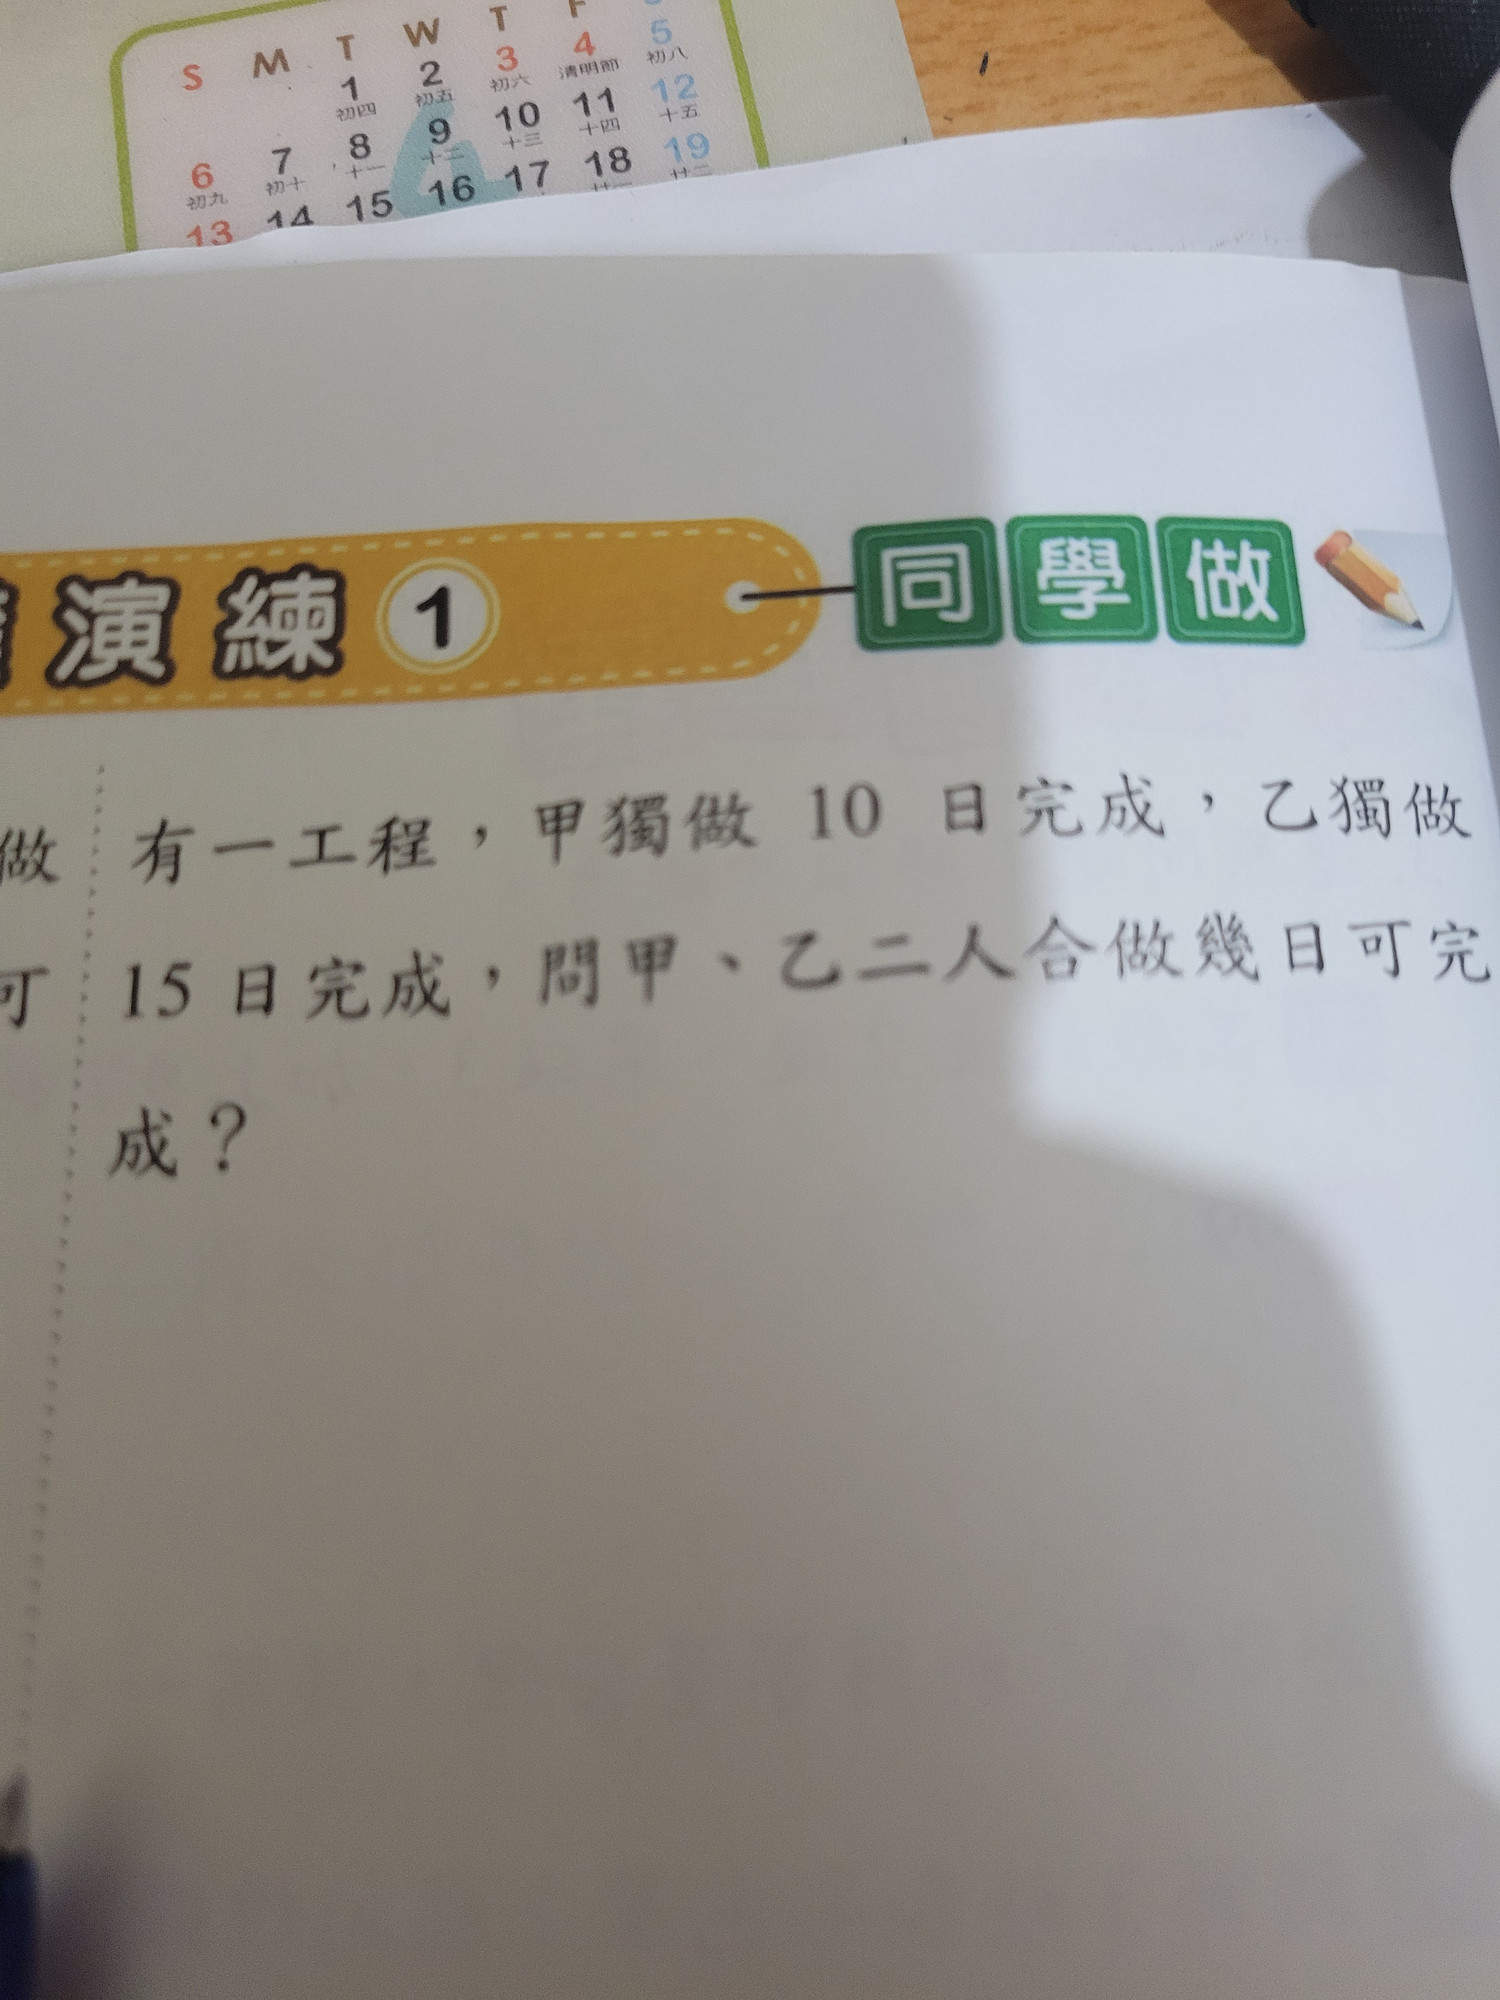 S M T W T F
1 2 3 4 5
初四 初五 初六 清明節 初八
6 7 8 9 10 11 12
初九 初十 十一 十二 十三 十四 十五
13 14 15 16 17 18 19
演練 1 同學做
做
可
有一工程，甲獨做 10 日完成，乙獨做
15 日完成，問甲、乙二人合做幾日可完
成？